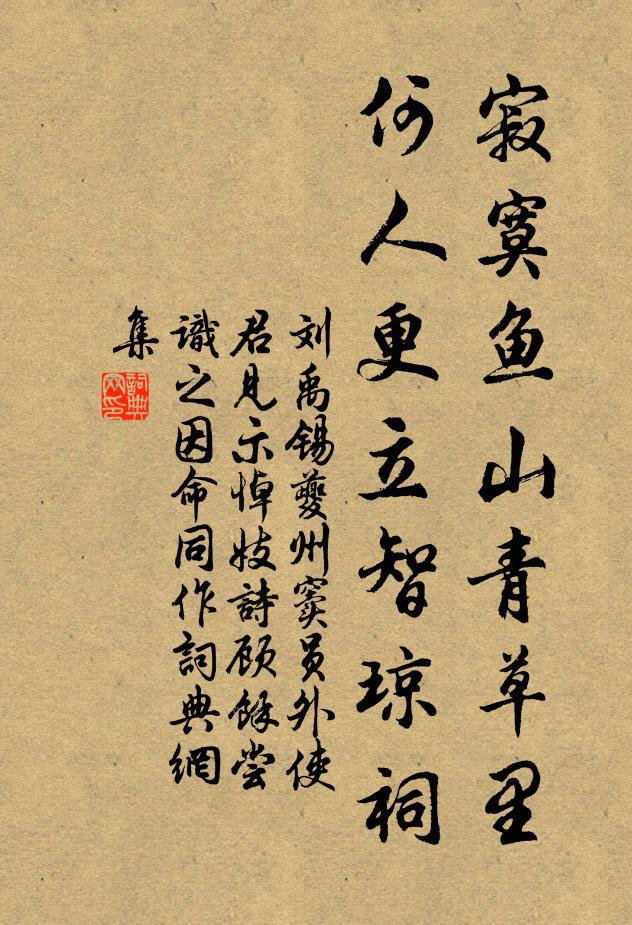 寂寞鱼山青草里
何人更立智琼祠
刘禹锡夔州窦员外使
君見示悼妓詩顾馀尝
識之因命同作詞典網
集
詞典網印